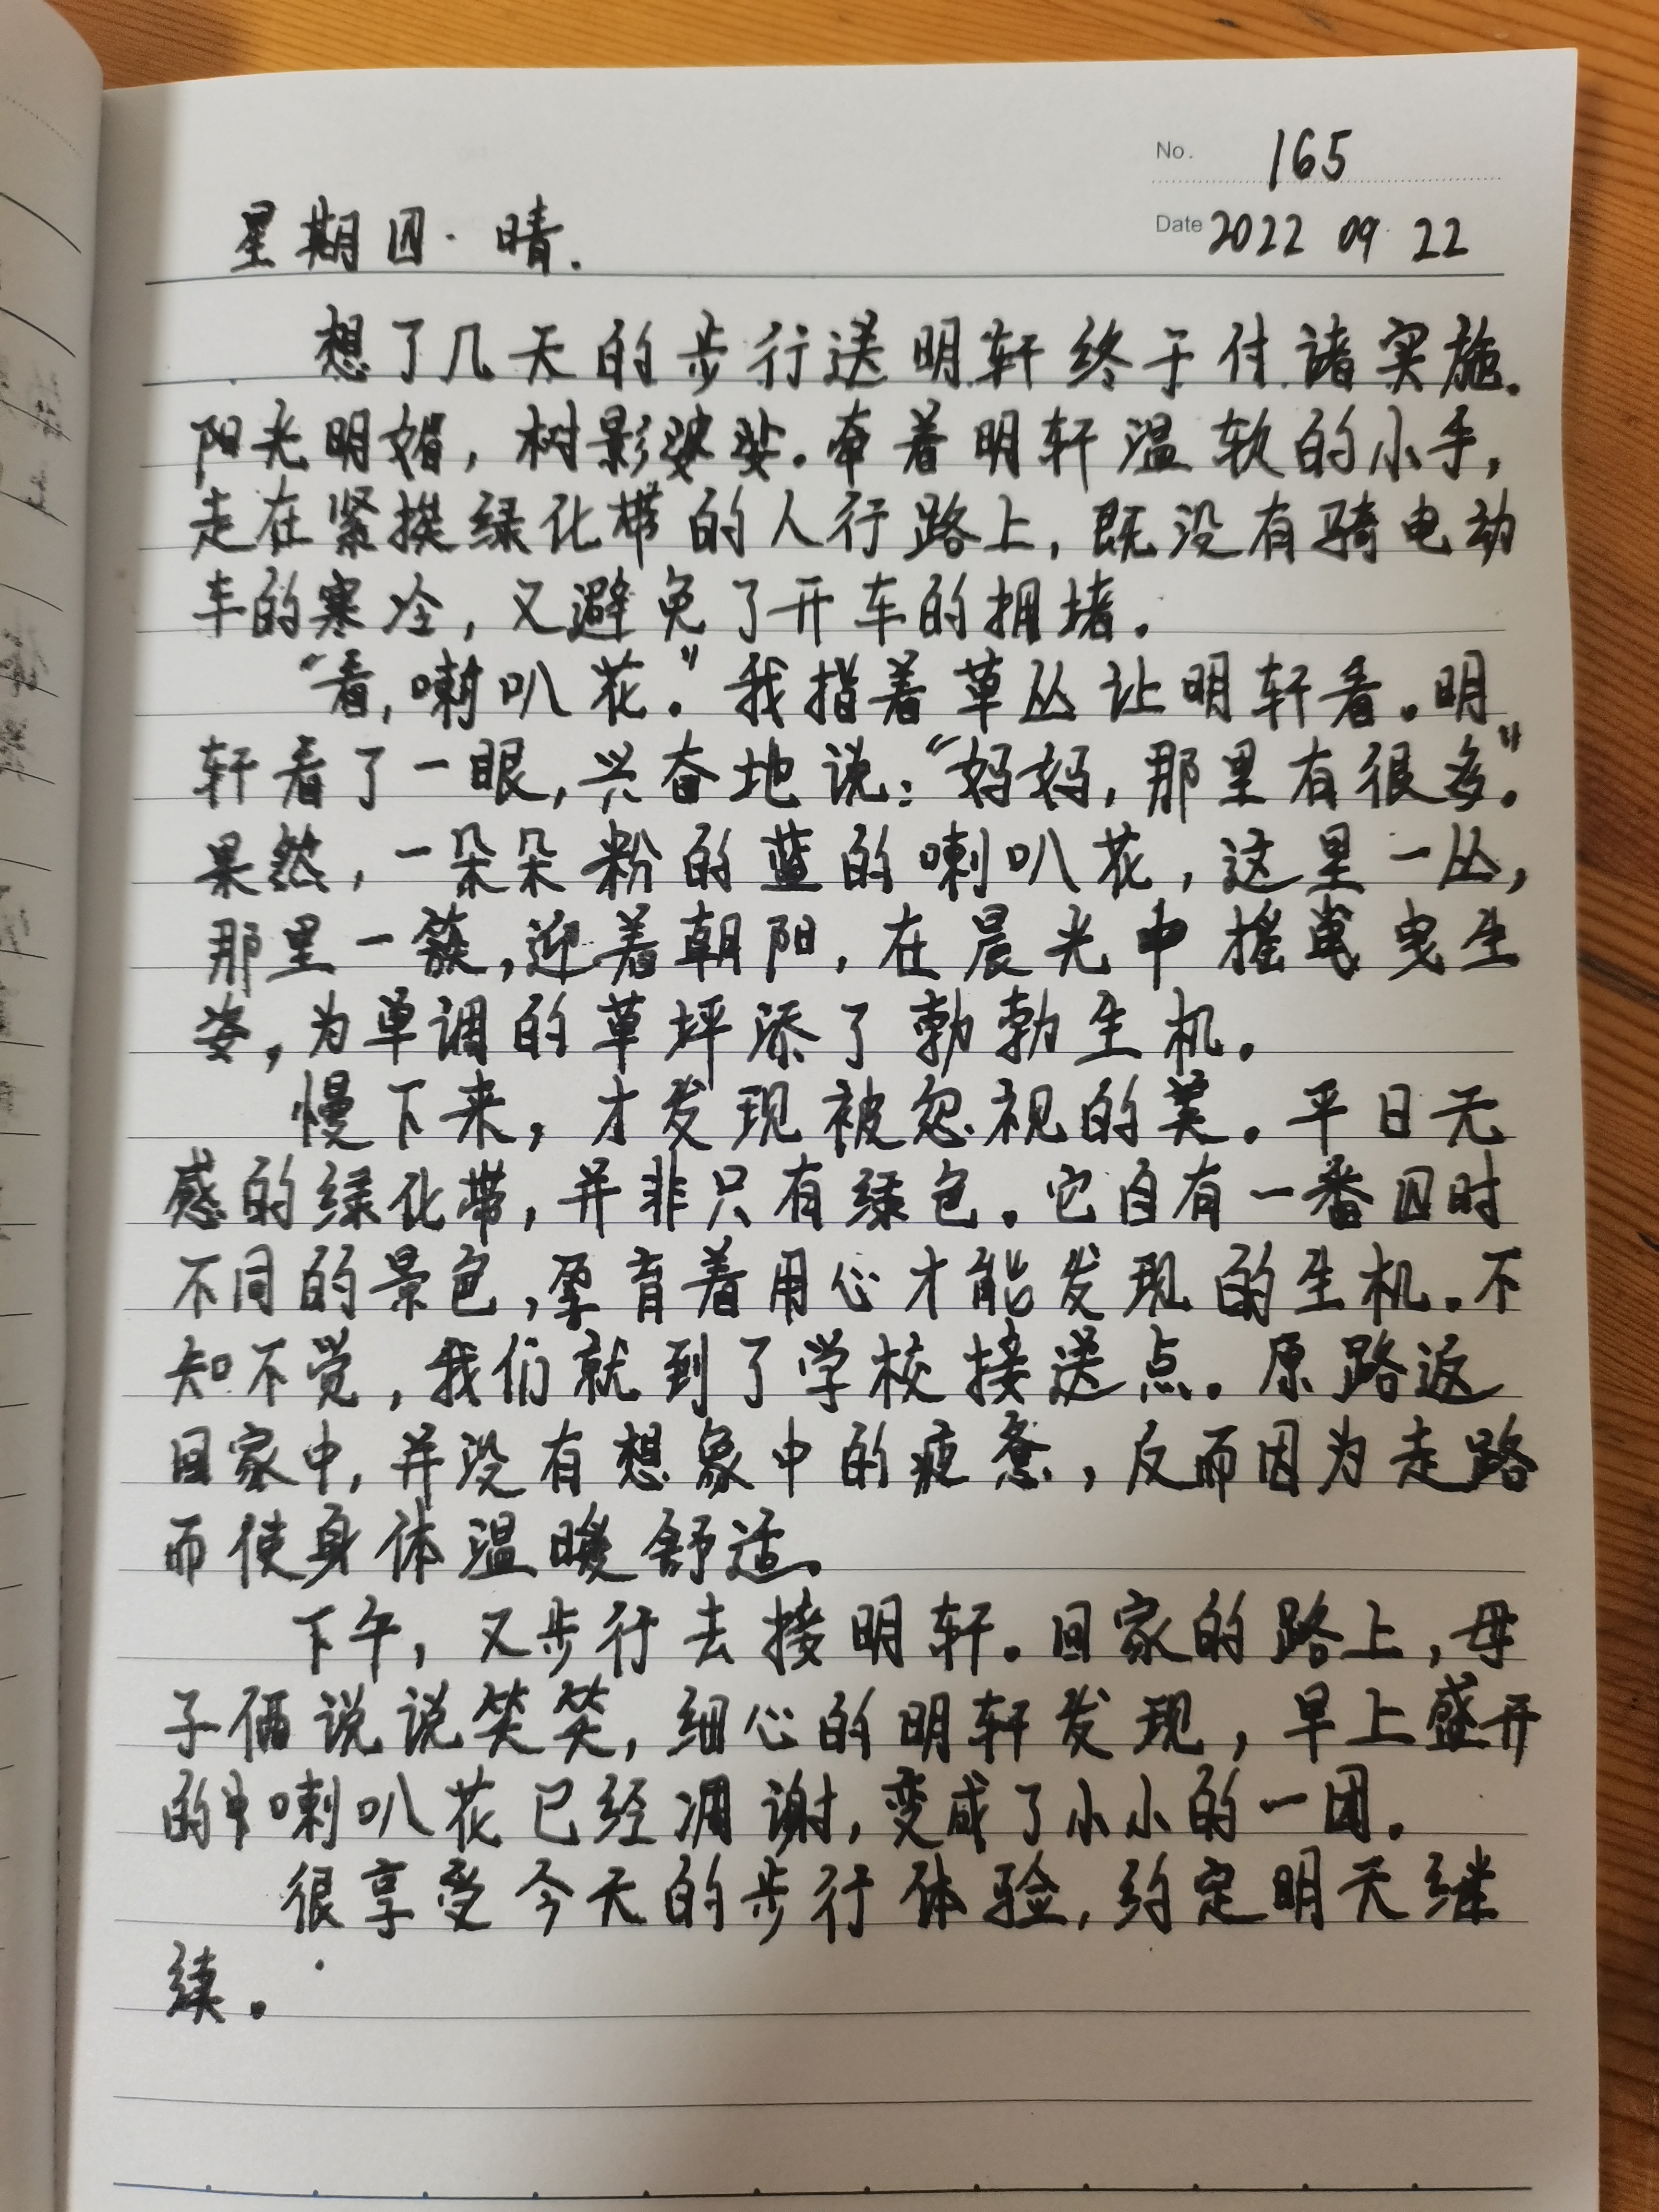 No. 165
星期四·晴.
Date 2022 09 22
想了几天的步行送明轩终于付诸实施。
阳光明媚，树影婆娑。牵着明轩温软的小手，
走在紧挨绿化带的人行路上，既没有骑电动
车的寒冷，又避免了开车的拥堵。
“看，喇叭花。”我指着草丛让明轩看。明
轩看了一眼，兴奋地说：“妈妈，那里有很多。”
果然，一朵朵粉的蓝的喇叭花，这里一丛，
那里一簇，迎着朝阳，在晨光中摇曳生
姿，为单调的草坪添了勃勃生机。
慢下来，才发现被忽视的美。平日无
感的绿化带，并非只有绿色。它自有一番四时
不同的景色，孕育着用心才能发现的生机。不
知不觉，我们就到了学校接送点。原路返
回家中，并没有想象中的疲惫，反而因为走路
而使身体温暖舒适。
下午，又步行去接明轩。回家的路上，母
子俩说说笑笑，细心的明轩发现，早上盛开
的喇叭花已经凋谢，变成了小小的一团。
很享受今天的步行体验，约定明天继
续。